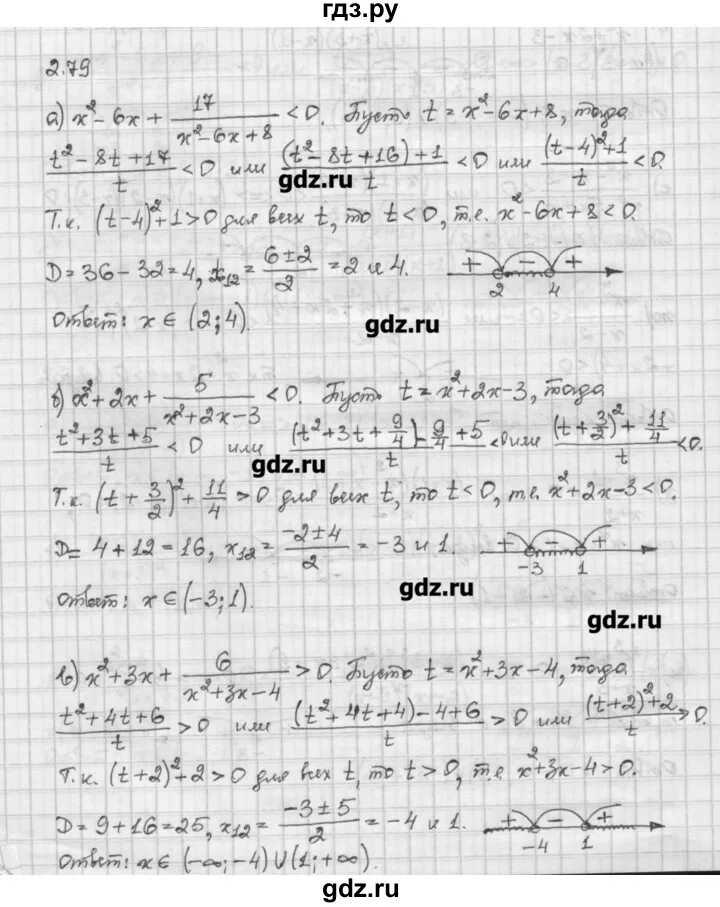 гдз.ру
2.79
а) x² – 6x + 17/(x² – 6x + 8) < 0. Пусть t = x² – 6x + 8, тогда
(t² – 8t + 17)/t < 0 или ((t² – 8t + 16) + 1)/t < 0 или ((t – 4)² + 1)/t < 0.
gdz.ru
Т.к. (t – 4)² + 1 > 0 для всех t, то t < 0, т.е. x² – 6x + 8 < 0.
D = 36 – 32 = 4, x₁₂ = (6 ± 2)/2 = 2 и 4. + – + 2 4
Ответ: x ∈ (2; 4).
gdz.ru
б) x² + 2x + 5/(x² + 2x – 3) < 0. Пусть t = x² + 2x – 3, тогда
(t² + 3t + 5)/t < 0 или ((t² + 3t + 9/4) – 9/4 + 5)/t < 0 или ((t + 3/2)² + 11/4)/t < 0.
gdz.ru
Т.к. (t + 3/2)² + 11/4 > 0 для всех t, то t < 0, т.е. x² + 2x – 3 < 0.
D = 4 + 12 = 16, x₁₂ = (–2 ± 4)/2 = –3 и 1. + – + –3 1
Ответ: x ∈ (–3; 1).
gdz.ru
gdz.ru
в) x² + 3x + 6/(x² + 3x – 4) > 0. Пусть t = x² + 3x – 4, тогда
(t² + 4t + 6)/t > 0 или ((t² + 4t + 4) – 4 + 6)/t > 0 или ((t + 2)² + 2)/t > 0.
gdz.ru
Т.к. (t + 2)² + 2 > 0 для всех t, то t > 0, т.е. x² + 3x – 4 > 0.
D = 9 + 16 = 25, x₁₂ = (–3 ± 5)/2 = –4 и 1. + – + –4 1
Ответ: x ∈ (–∞; –4) ∪ (1; +∞).
gdz.ru